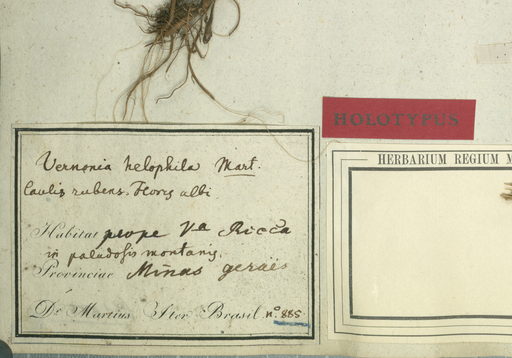 HOLOTYPUS
HERBARIUM REGIUM M
Vernonia helophila Mart.
Caulis rubens. Flores albi
Habitat prope Va Ricca
in paludosis montanis.
Provinciae Minas geraës
Dr Martius Iter Brasil. no. 885